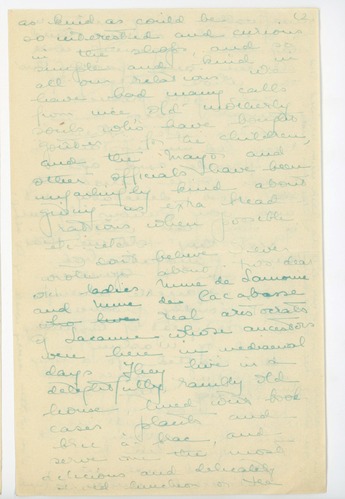 as kind as could be (2
so interested and curious
in the shops and so
simple and kind in
all our relations. We
have had many calls
from nice old motherly
souls who have brought
goodies for the children,
and the mayor and
other officials have been
unfailingly kind about
giving us extra bread
rations when possible
etc
I don't believe I ever
wrote about
ladies, Mme de
and Mme de Cacabasse
who live real aristocrats
of Lacaune whose ancestors
were here in mediaeval
days. They live in a
delightfully rambly old
house lined with book
cases plants and
bric à brac, and
serve the most
delicious and delicately
luncheon or tea